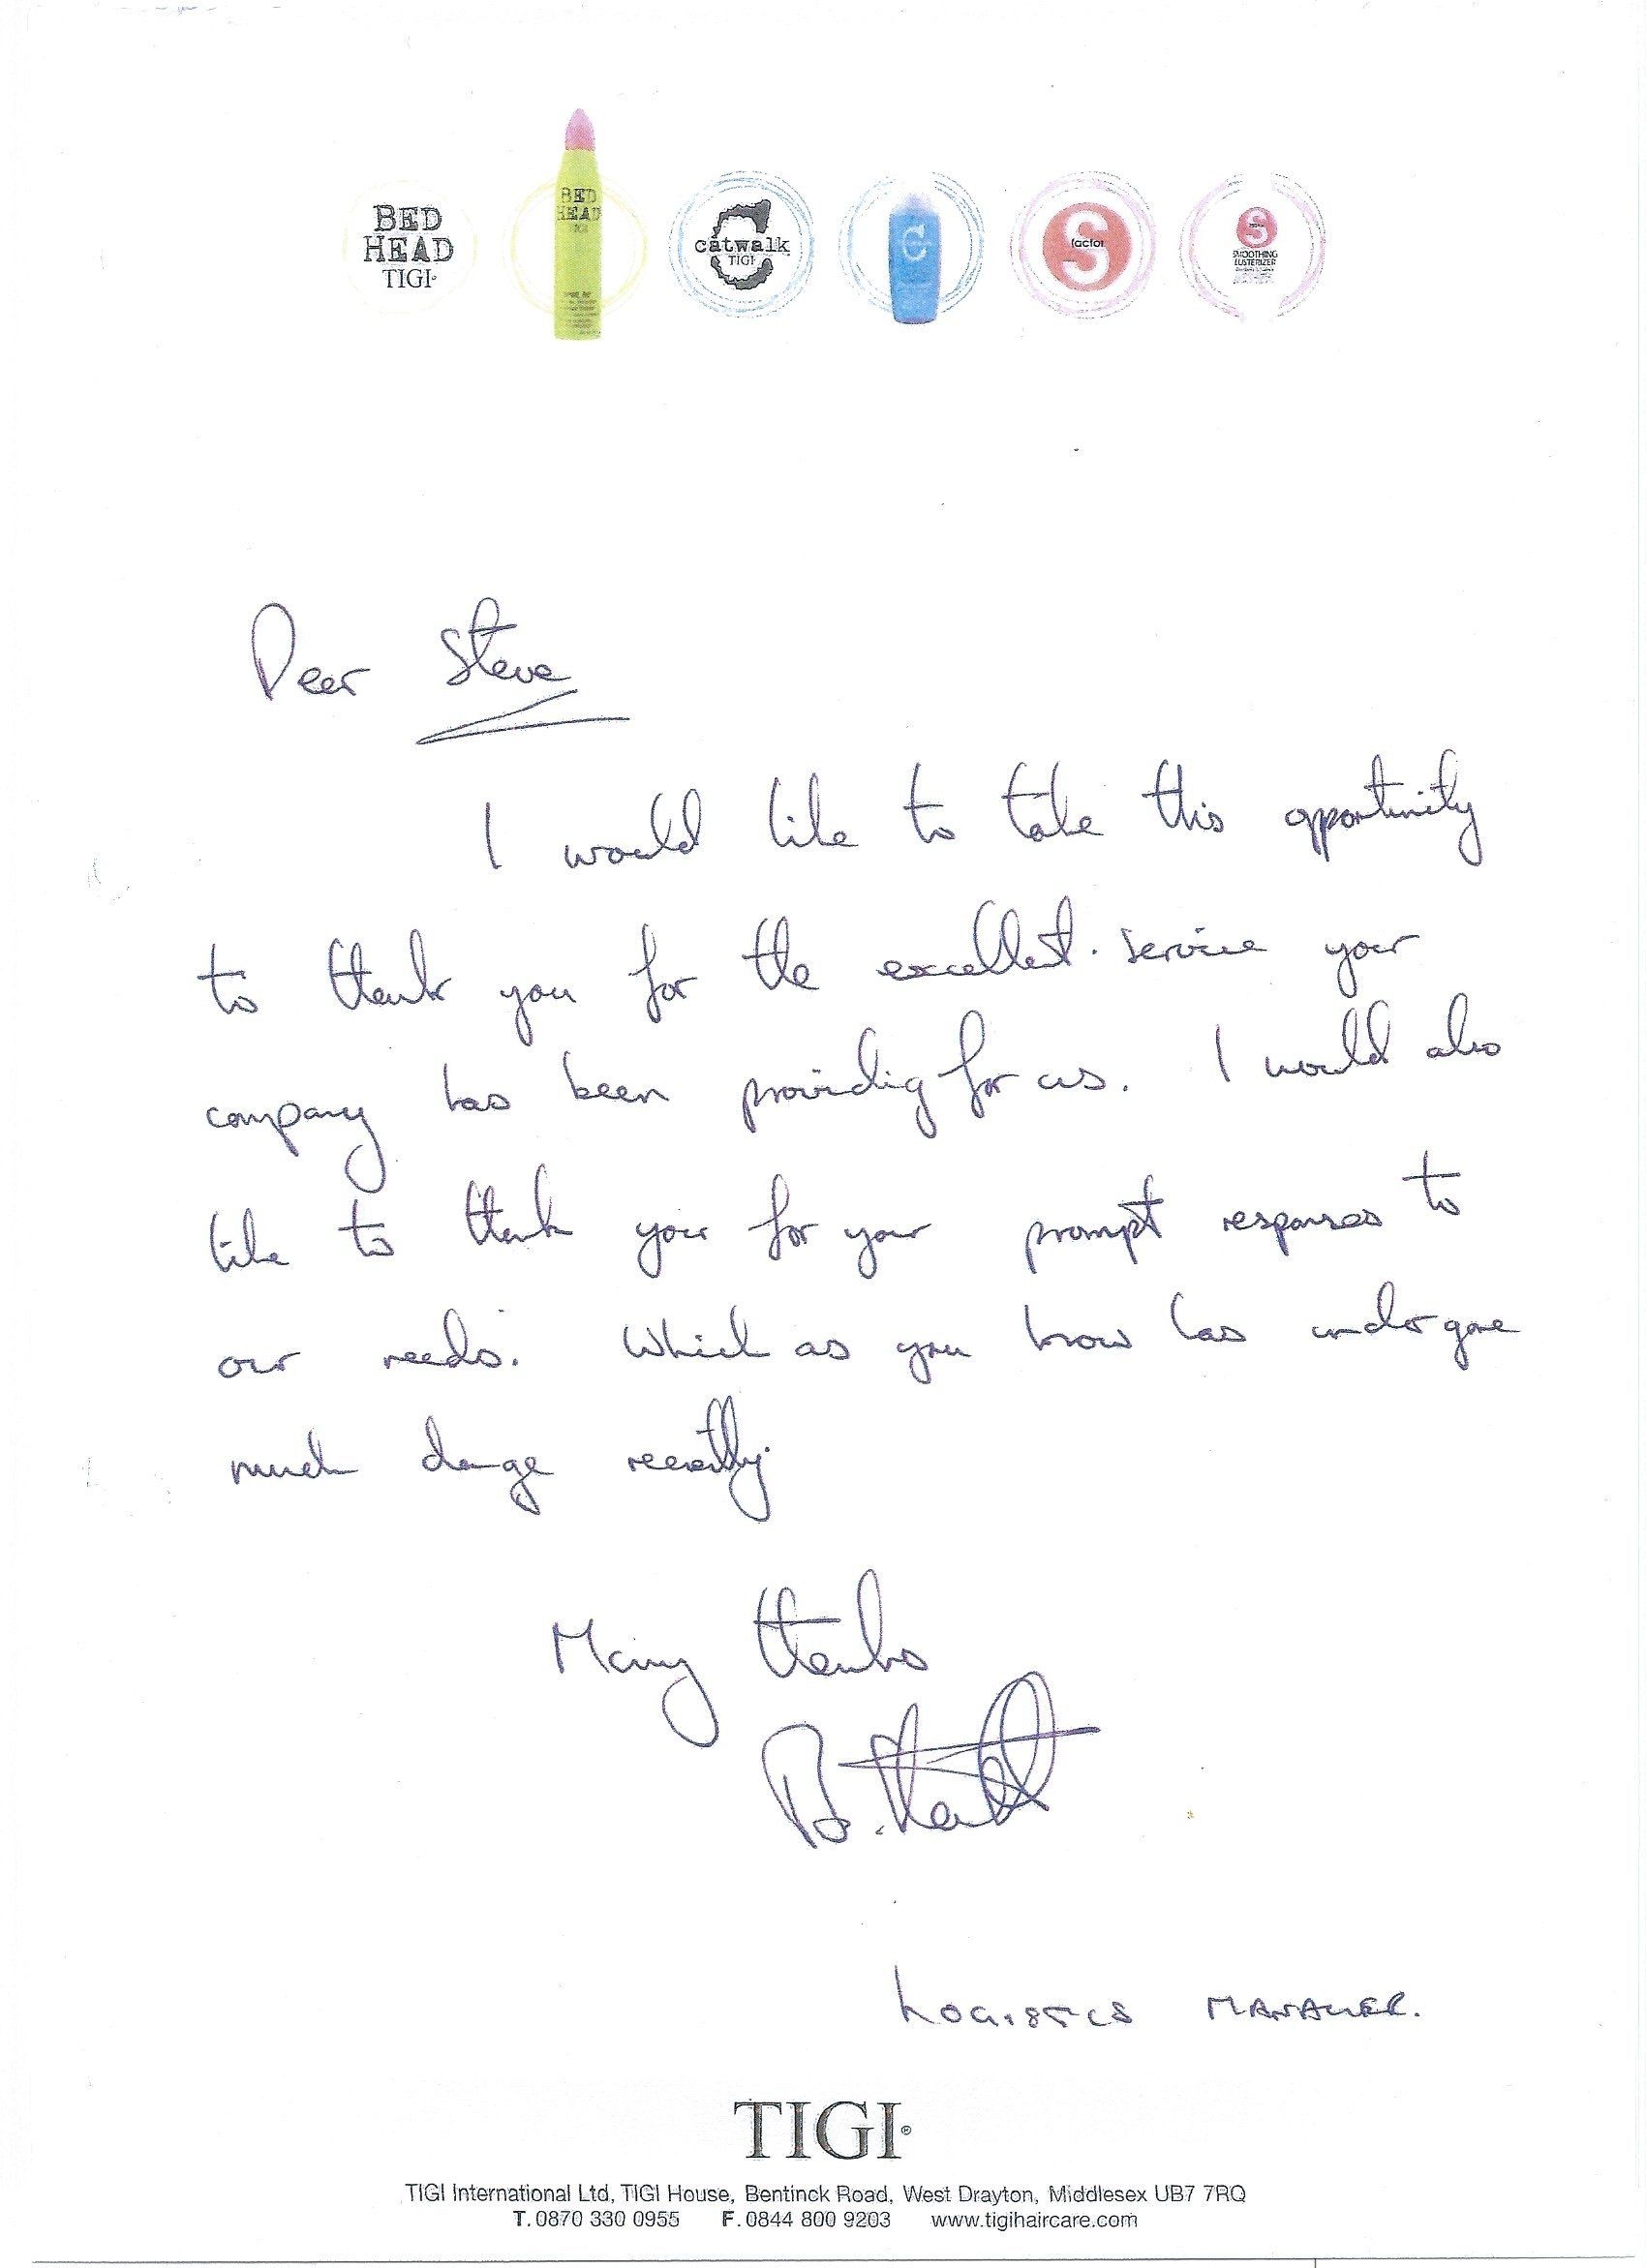 BED HEAD TIGI
BED HEAD
catwalk TIGI
C
S factor
S
SMOOTHING LUSTERIZER
Dear Steve
I would like to take this opportunity
to thank you for the excellent service your
company has been providing for us. I would also
like to thank you for your prompt responses to
our needs. Which as you know has undergone
much change recently
Many thanks
B.
LOGISTICS MANAGER.
TIGI®
TIGI International Ltd, TIGI House, Bentinck Road, West Drayton, Middlesex UB7 7RQ
T. 0870 330 0955 F. 0844 800 9203 www.tigihaircare.com